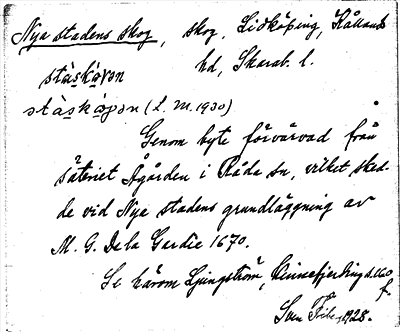 Nya stadens skog, skog, Lidköping, Kållands
hd, Skarab. l.
stàskǫ́gən
stàskǫ́gən (L. M. 1930)
Genom byte förvärvad från
säteriet Ågården i Råda sn, vilket sked-
de vid Nya stadens grundläggning av
M. G. De la Gardie 1670.
Se härom Ljungström, Kinnefjerding s. 160
f.
Sven 1928.